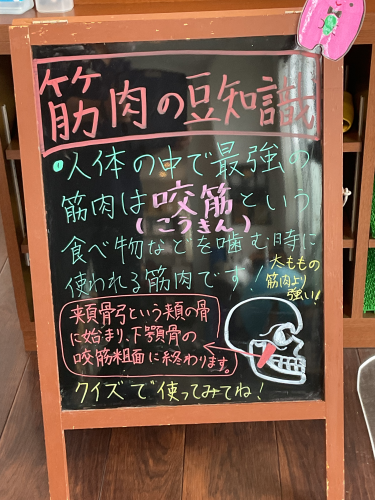 筋肉の豆知識
・人体の中で最強の
筋肉は咬筋という
(こうきん)
食べ物などを噛む時に
使われる筋肉です!
太ももの
筋肉より
強い!
頬骨弓という頬の骨
に始まり、下顎骨の
咬筋粗面に終わります。
クイズで使ってみてね!